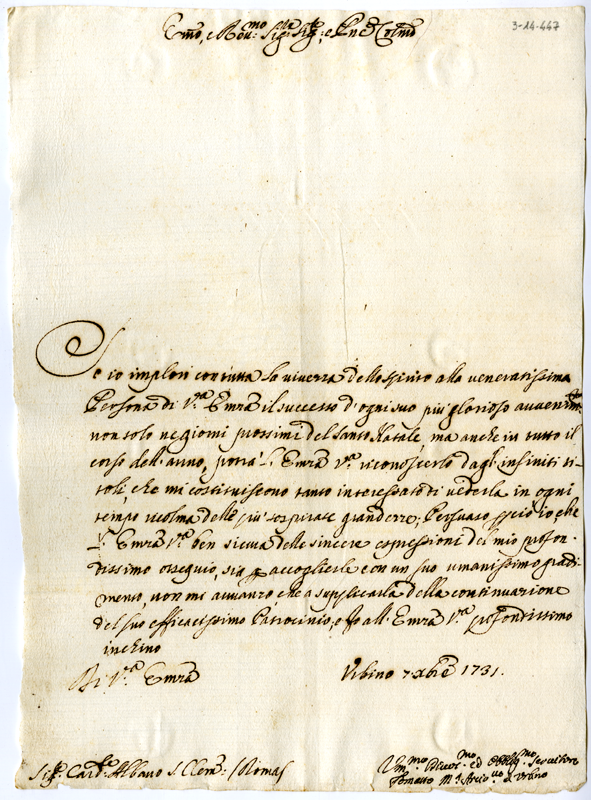 3-14-447
Emo, e Rdu:mo Sig:r Sig:r, e Pne Colmo
Se io implori con tutta la vivezza dello spirito alla veneratissima
Persona di V.ra Emza il successo d'ogni suo più glorioso avvenimto
non solo ne giorni prossimi del Santo Natale, ma anche in tutto il
corso dell'anno, potrà l'Emza V.ra riconoscerlo dagl'infiniti ti-
toli, che mi costituiscono tanto interessato di vederla in ogni
tempo ricolma delle più sospirate grandezze; Persuaso pciò io, che
l'Emza V.ra ben sicura delle sincere espressioni del mio profon-
dissimo ossequio, sia p accoglierle con un suo umanissimo gradi-
mento, non mi avanzo che a supplicarla della continuazione
del suo efficacissimo Patrocinio, e fo all'Emza V.ra profondissimo
inchino
Di V.ra Emza
Urbino 7 Xbre 1731.
Sig.r Card.le Albano S. Clem:te (Roma)
Um:mo Divot:mo ed Obblig:mo Servitore
Tomaso M.a Arciv:vo d'Urbino